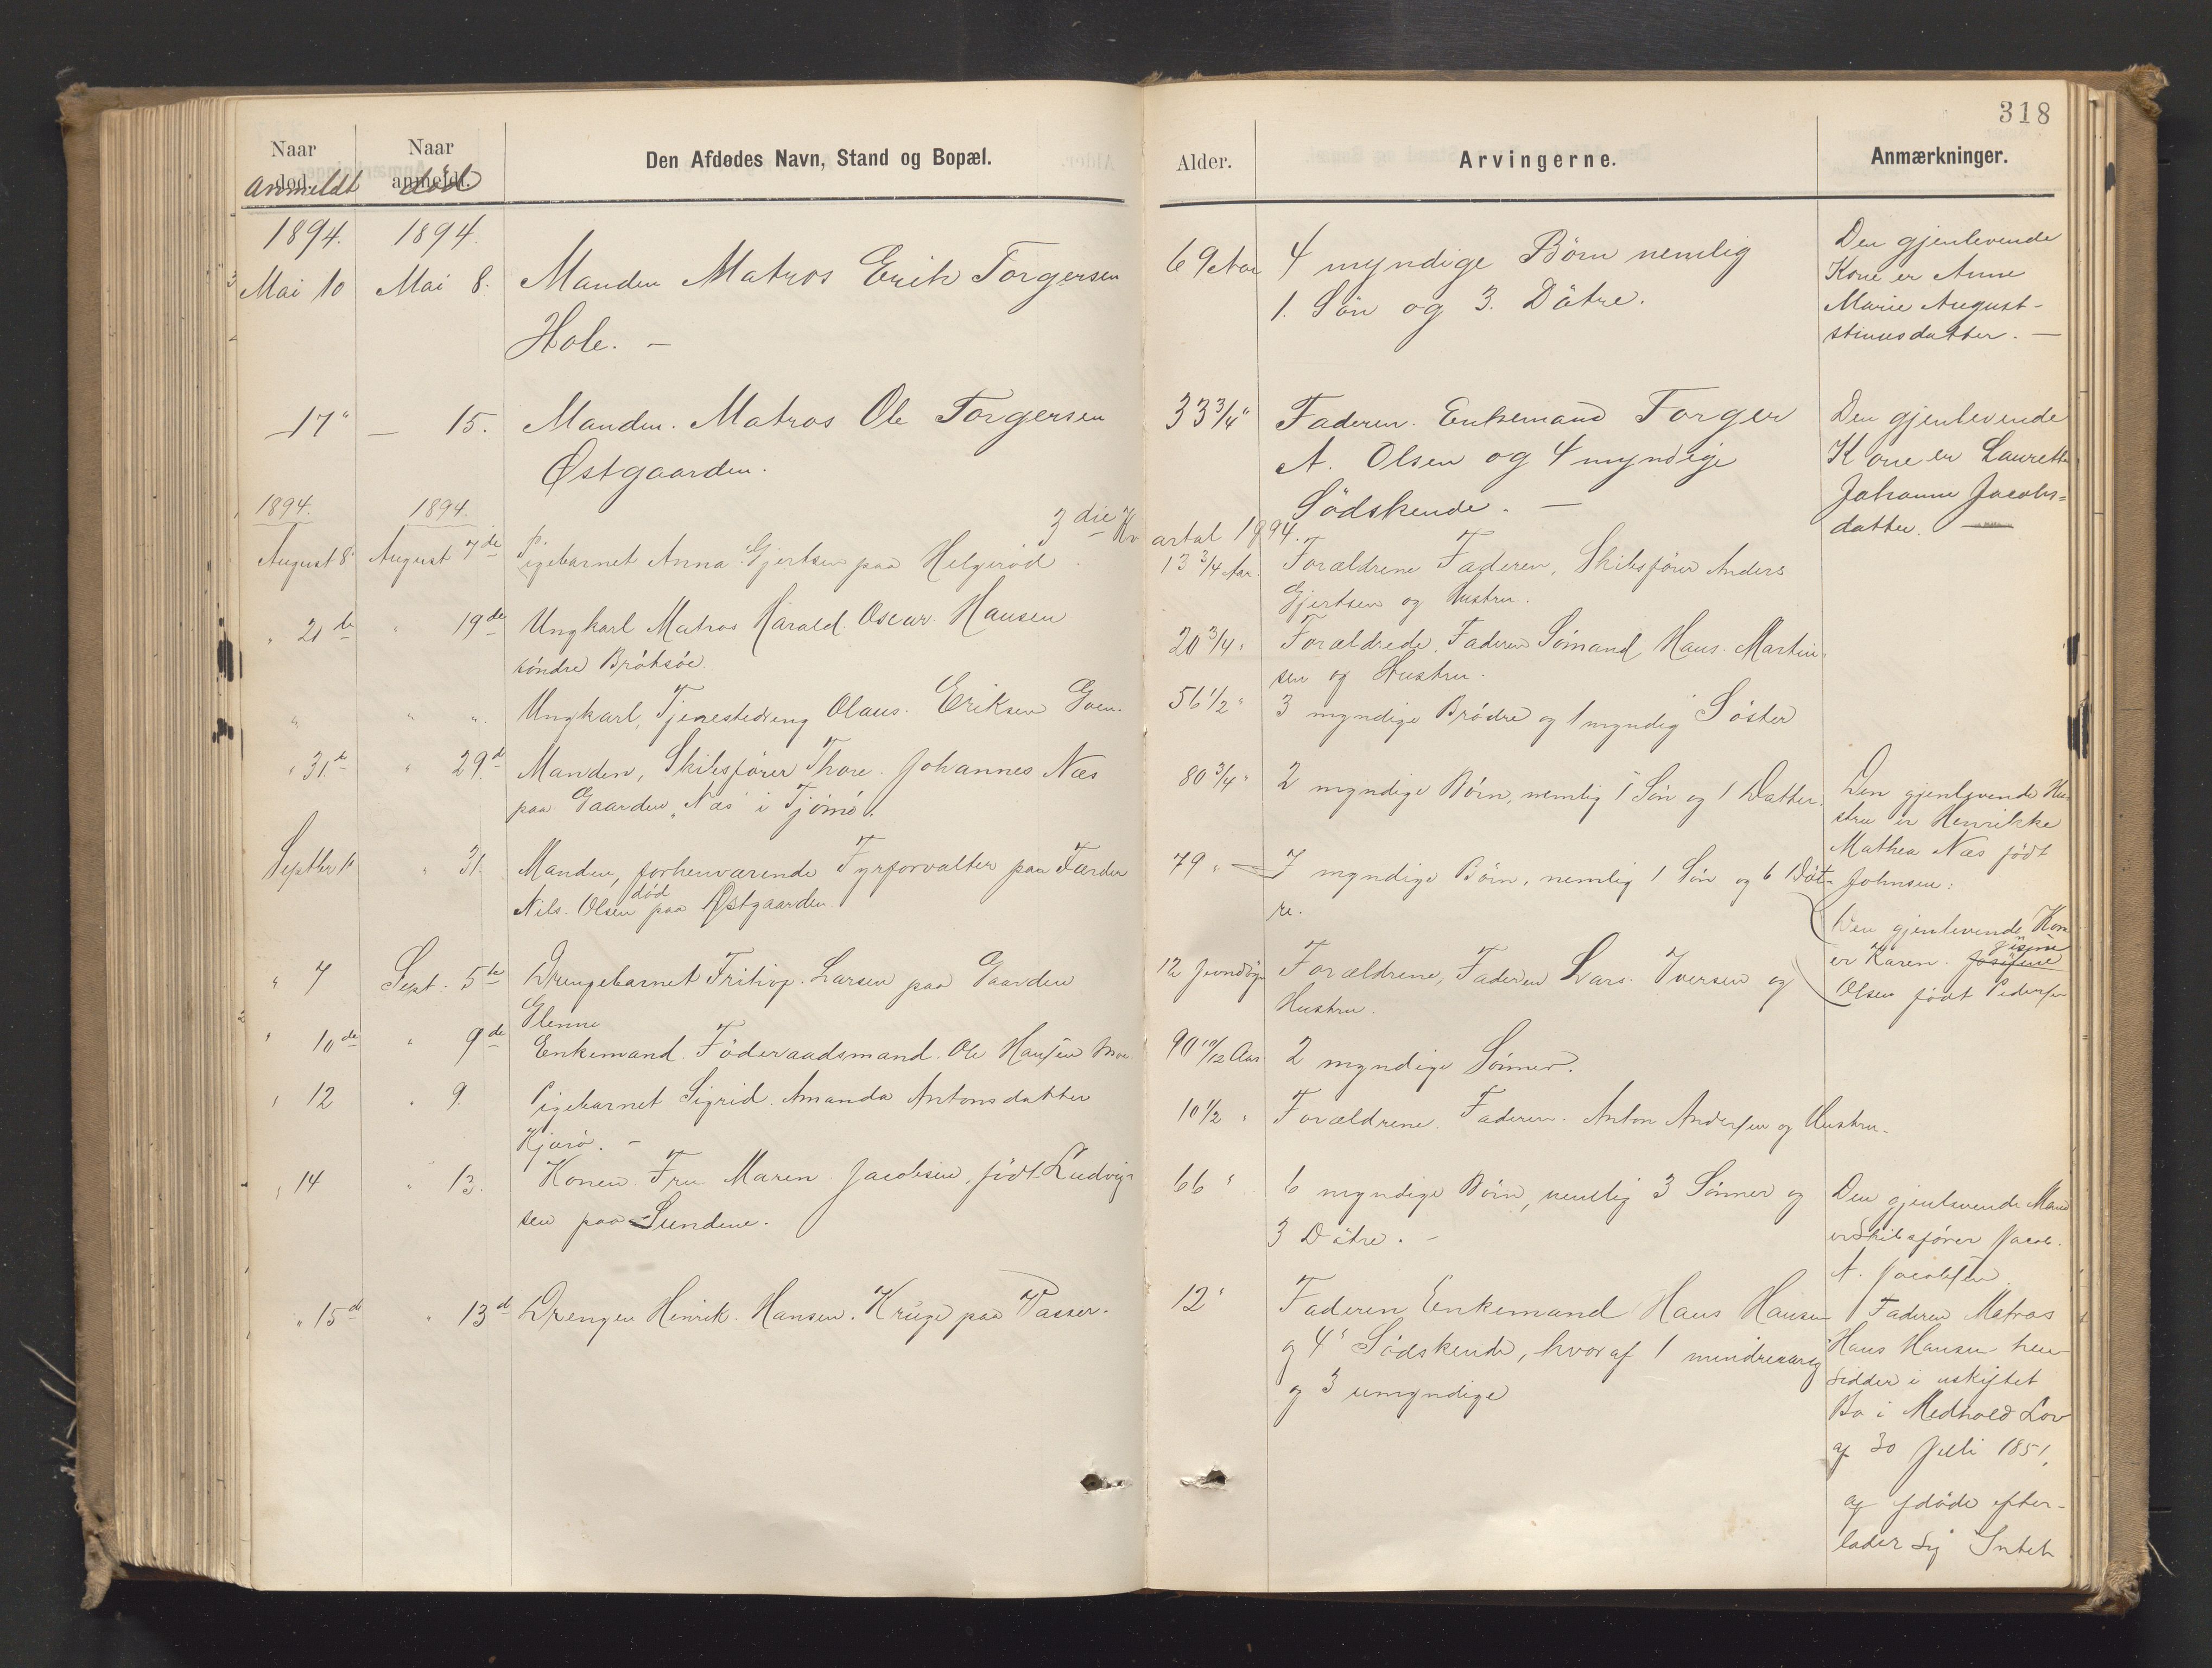 318
Naar død. Naar anmeldt. Den Afdødes Navn, Stand og Bopæl. Alder. Arvingerne. Anmærkninger.
anmeldt død
1894. 1894.
Mai 10 Mai 8. Manden Matros Erik Torgersen
Hole. —
69 Aar 4 myndige Börn nemlig
1. Sön og 3. Dötre.
Den gjenlevende
Kone er Anne
Marie August-
stinusdatter. —
— 17 " — 15. Manden. Matros Ole Torgersen
Østgaarden.
33 3/4 " Faderen. Enkemand Torger
A. Olsen og 4 myndige
Södskende. —
Den gjenlevende
Kone er Laurette
Johanne Jacobs-
datter. —
3die Kvartal 1894.
1894. 1894.
August 8 August 7de Pigebarnet Anna Gjertsen paa Helgerød.
13 3/4 Aar. Forældrene Faderen, Skibsfører Anders
Gjertsen og Hustru.
" 21de " 19de Ungkarl Matros Harald Oscar Hansen
söndre Brötsöe.
20 3/4 " Forældrede, Faderen Sömand Hans Martin-
sen og Hustru.
" " " Ungkarl, Tjenestedreng Olaus Eriksen Goen.
56 1/2 " 3 myndige Brödre og 1 myndig Söster
" 31te " 29d Manden, Skibsfører Thore Johannes Næs
paa Gaarden "Næs" i Tjömö.
80 3/4 " 2 myndige Börn, nemlig 1 Sön og 1 Datter.
Den gjenlevende Hu-
stru er Henrikke
Mathea Næs født
Johnsen.
Septbr 1 " 31. Manden, forhenværende Fyrforvalter paa Færder
Nils Olsen død paa Østgaarden.
79 " 7 myndige Börn, nemlig 1 Sön og 6 Döt-
re.
Den gjenlevende Kone
er Karen Josefine
Olsen født Pedersen
" 7 Sept. 5te Drengebarnet Fritiof Larsen paa Gaarden
Glenne
12 Jevndögn Forældrene, Faderen Lars Iversen og
Hustru.
" 10de " 9de Enkemand Föderaadsmand Ole Hansen Moe
90 10/12 Aar 2 myndige Sönner.
" 12 " 9. Pigebarnet Sigrid Amanda Antonsdatter
Kjærö. —
10 1/2 " Forældrene. Faderen Anton Andersen og Hustru.
" 14 " 13. Konen Fru Maren Jacobsen, født Ludvig-
sen paa Sundene.
66 " 6 myndige Börn, nemlig 3 Sönner og
3 Dötre. —
Den gjenlevende Mand
er Skibsfører Jacob
A. Jacobsen.
" 15d " 13d Drengen Henrik Hansen Kruge paa Vasser.
12 " Faderen Enkemand Hans Hansen
og 4 Södskende, hvoraf 1 mindreaarig
og 3 umyndige
Faderen Matros
Hans Hansen hen-
sidder i uskiftet
Bo i Medhold Lov
af 30 Juli 1851,
afdöde efter-
lader sig Intet